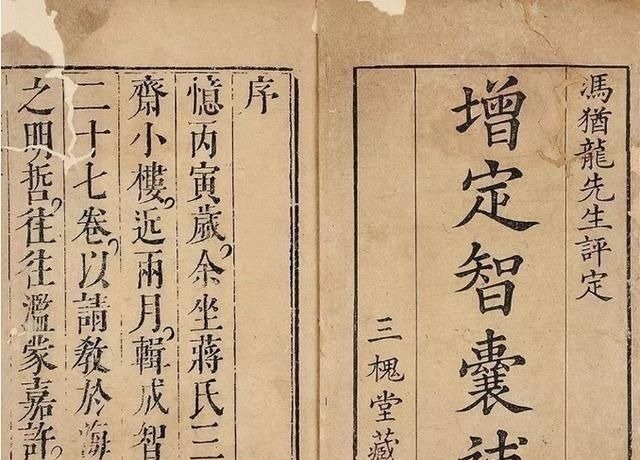 馮猶龍先生評定
增定智囊補
三槐堂藏
序
憶丙寅歲。余坐蔣氏三
齋小樓。近兩月。輯成智
二十七卷。以請教於海
之明哲。往往濫蒙嘉許。